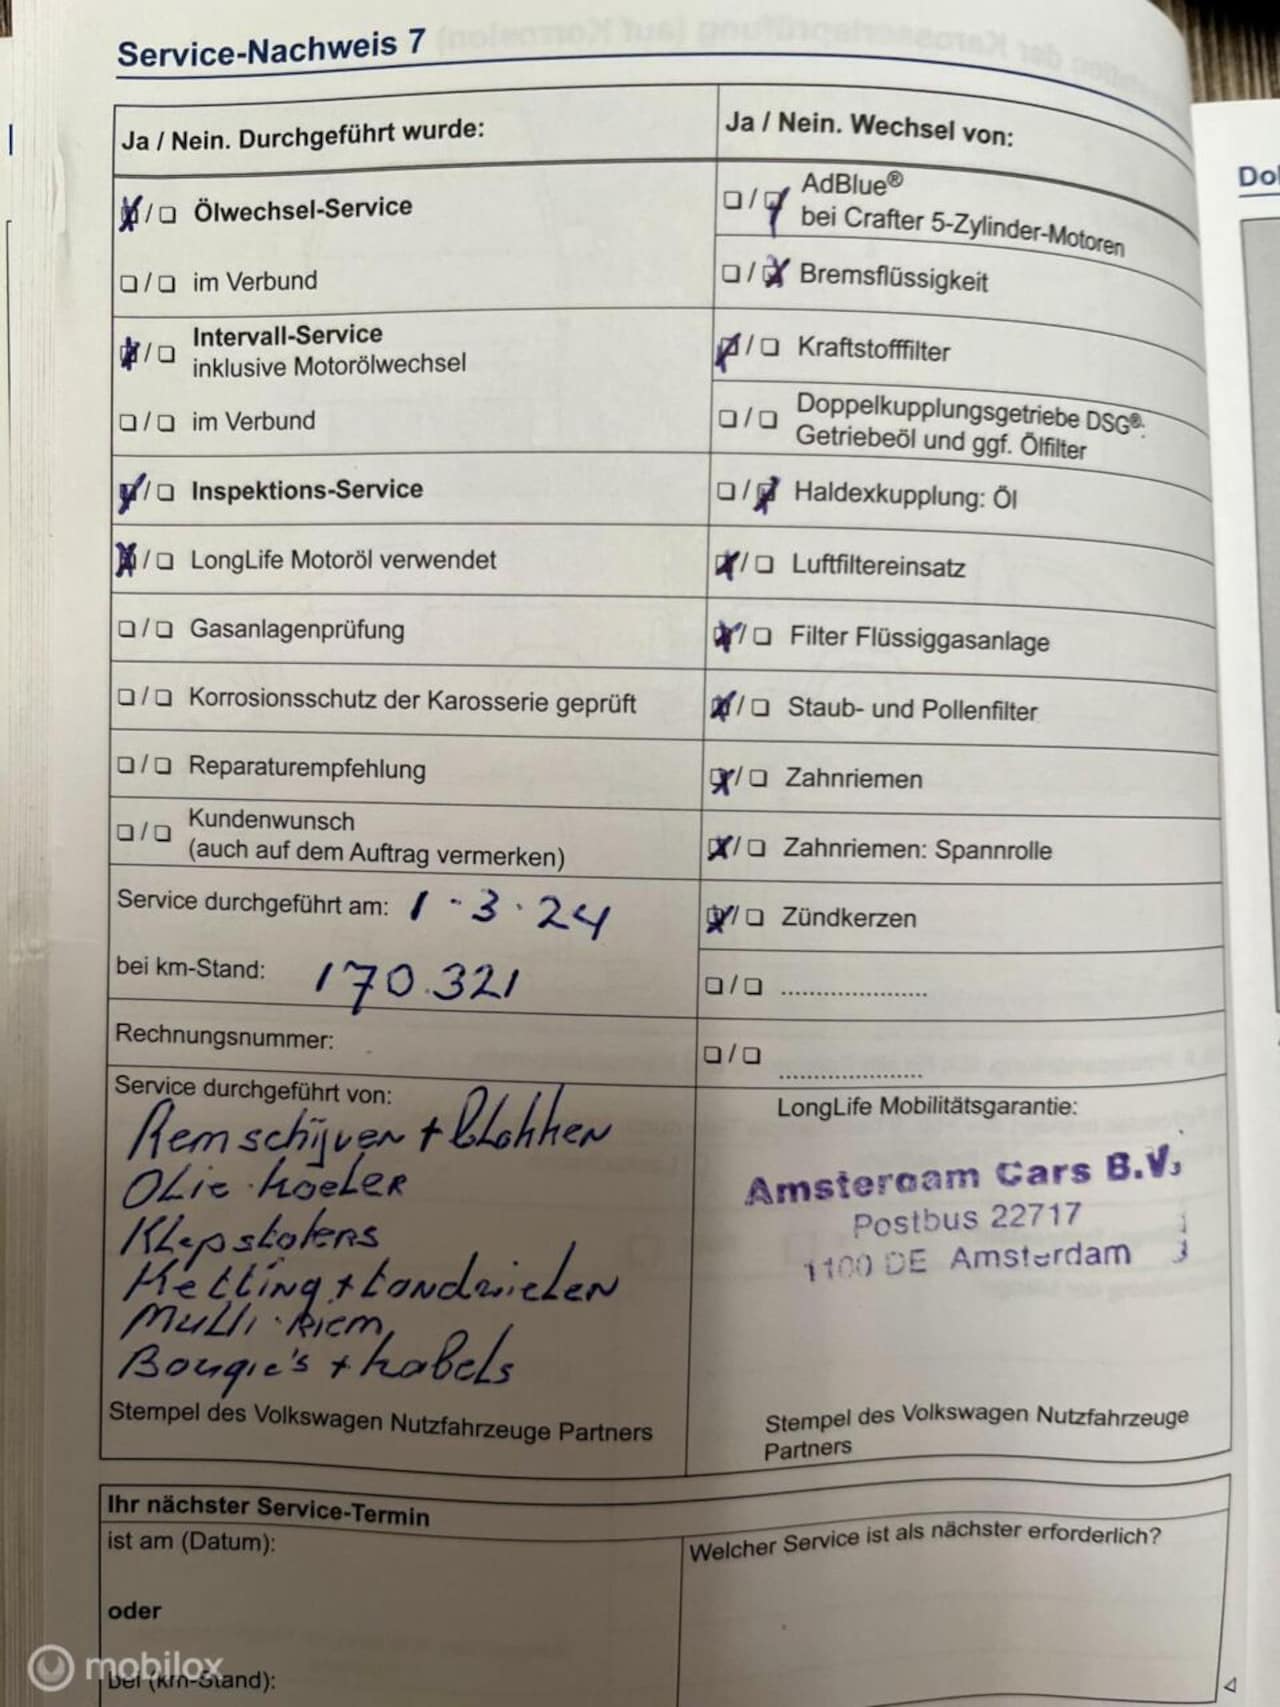 Service-Nachweis 7
Ja / Nein. Durchgeführt wurde:
Ölwechsel-Service
im Verbund
Intervall-Service
inklusive Motorölwechsel
im Verbund
Inspektions-Service
LongLife Motoröl verwendet
Gasanlagenprüfung
Korrosionsschutz der Karosserie geprüft
Reparaturempfehlung
Kundenwunsch
(auch auf dem Auftrag vermerken)
Service durchgeführt am: 1-3-24
bei km-Stand: 170.321
Rechnungsnummer:
Service durchgeführt von:
Remschijven + blokken
Olie-koeler
Klepstoters
Ketting + tandwielen
Multi-Riem
Bougie's + kabels
Stempel des Volkswagen Nutzfahrzeuge Partners
Ja / Nein. Wechsel von:
AdBlue®
bei Crafter 5-Zylinder-Motoren
Bremsflüssigkeit
Kraftstofffilter
Doppelkupplungsgetriebe DSG®:
Getriebeöl und ggf. Ölfilter
Haldexkupplung: Öl
Luftfiltereinsatz
Filter Flüssiggasanlage
Staub- und Pollenfilter
Zahnriemen
Zahnriemen: Spannrolle
Zündkerzen
LongLife Mobilitätsgarantie:
Amsterdam Cars B.V.
Postbus 22717
1100 DE Amsterdam
Stempel des Volkswagen Nutzfahrzeuge
Partners
Ihr nächster Service-Termin
ist am (Datum):
oder
bei (km-Stand):
Welcher Service ist als nächster erforderlich?
Dol
mobilox